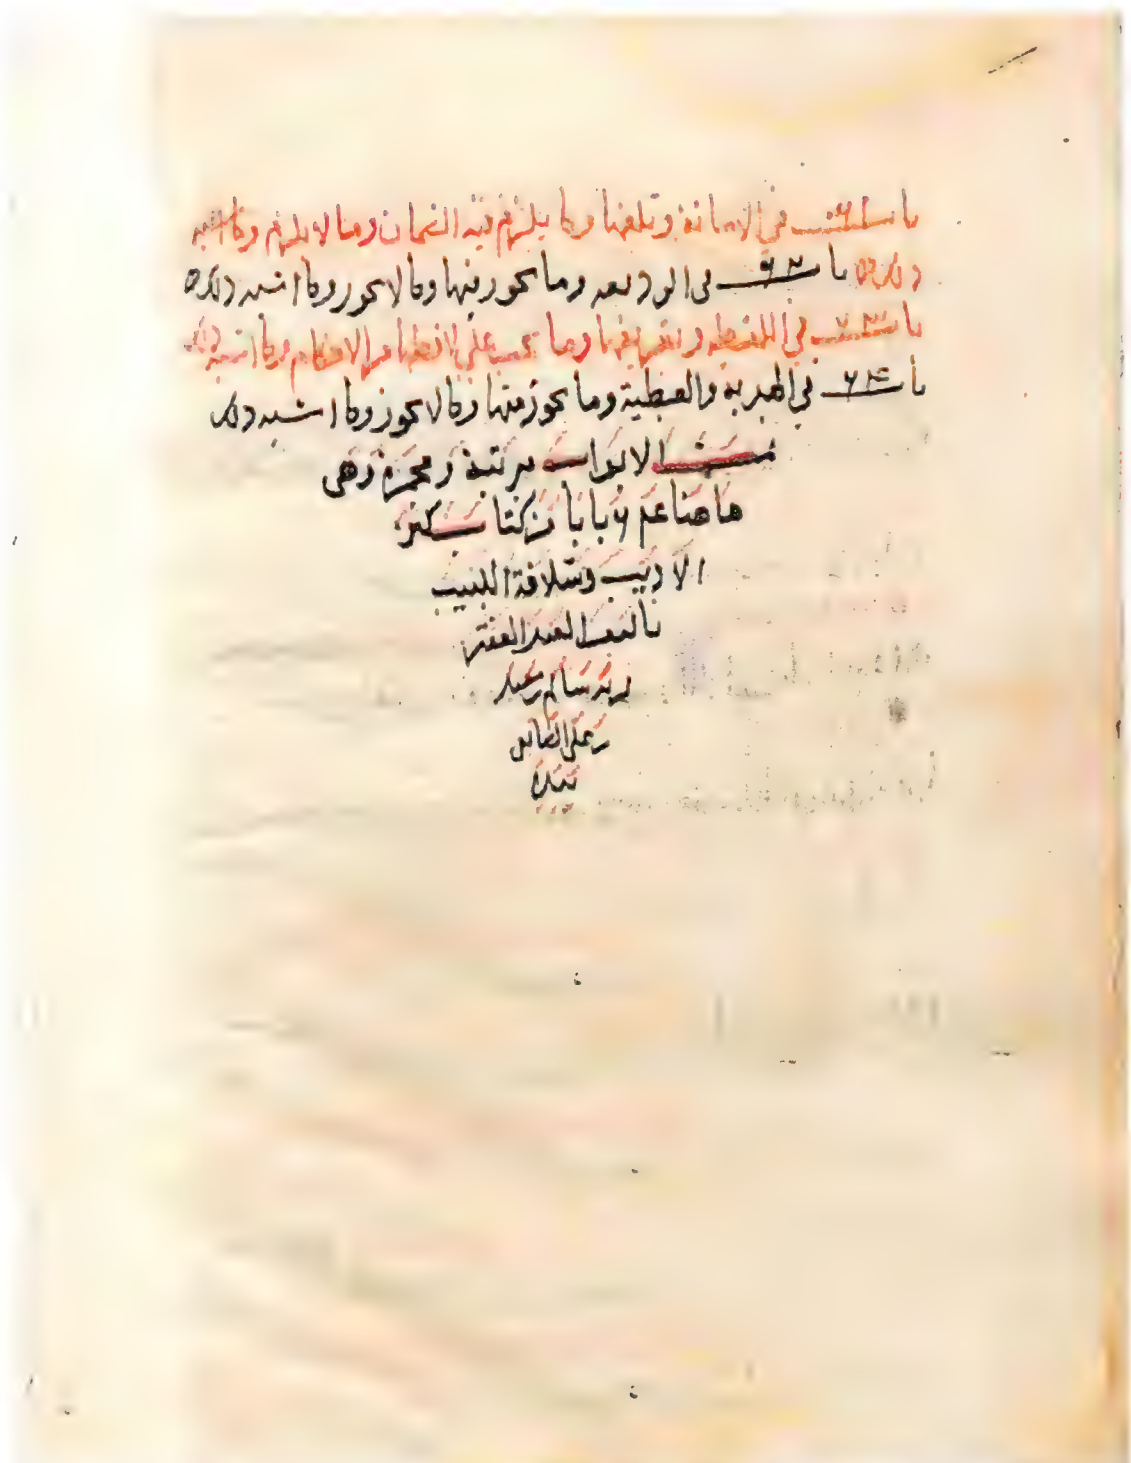 باب ٦١ في الامانة وتلفها وما يلزم فيه الضمان وما لا يلزم وما اشبه
ذلك باب ٦٢ في الوديعه وما يجوز فيها وما لا يجوز وما اشبه ذلك
باب ٦٣ في اللقطه وتعريفها وما يجب على لاقطها من الاحكام وما اشبه ذلك
باب ٦٤ في الهدية والعطية وما يجوز منها وما لا يجوز وما اشبه ذلك
تمت الابواب مرتبة وهي
هاهنا بابا من كتاب كنز
الاديب وسلافة اللبيب
تاليف العبد الفقير
سالم
الصايغي
بيده